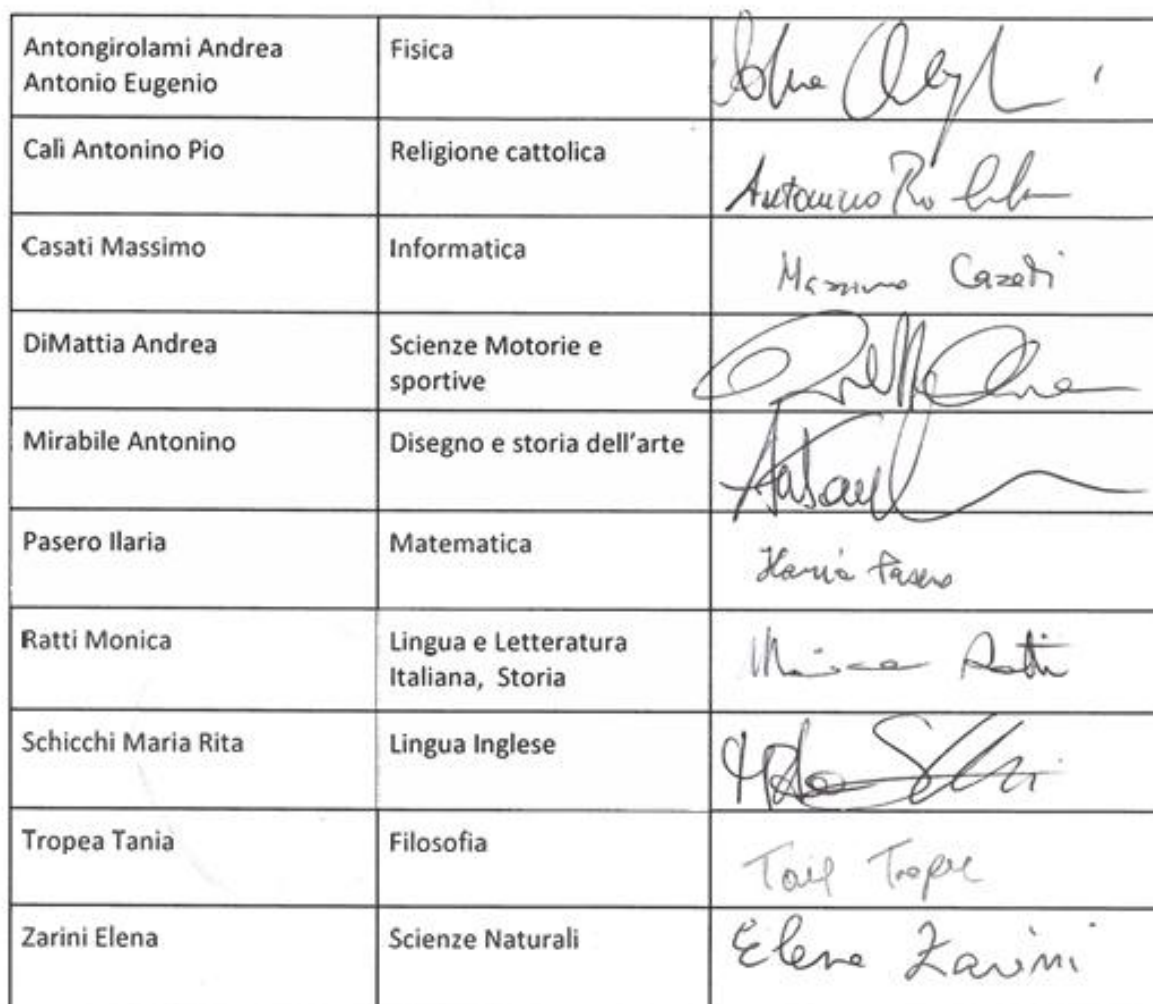 Antongirolami Andrea
Antonio Eugenio
Fisica
Calì Antonino Pio
Religione cattolica
Antonino
Casati Massimo
Informatica
Massimo Casati
DiMattia Andrea
Scienze Motorie e
sportive
Mirabile Antonino
Disegno e storia dell'arte
Pasero Ilaria
Matematica
Ilaria Pasero
Ratti Monica
Lingua e Letteratura
Italiana, Storia
Monica Ratti
Schicchi Maria Rita
Lingua Inglese
Tropea Tania
Filosofia
Tania Tropea
Zarini Elena
Scienze Naturali
Elena Zarini